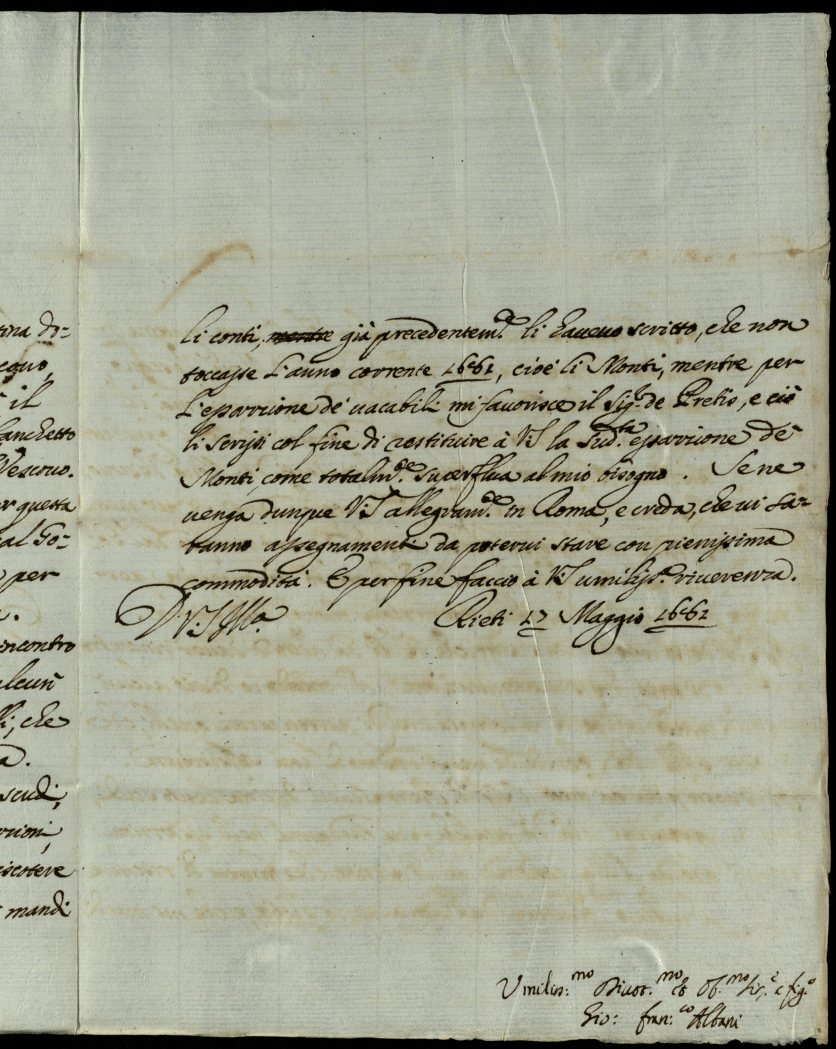 tina do=
il
Vescovo.
er questa
al Go=
per
encontro
alcun
li, che
a.
scudi,
rioni,
iscotere
mandi
li conti, mentre già precedentem.te li havevo scritto, che non
toccasse l'anno corrente 1661, cioè li Monti, mentre per
l'esparzione de' vacabili mi favorisce il Sig.r de Pretis, e ciò
li scrissi col fine di restituire à V.S. la Sud.ta esparzione de'
Monti, come totalm.te superflua al mio bisogno. Se ne
venga dunque V.S. allegram.te in Roma, e creda, che vi sa-
ranno assegnamenti da potervi stare con pienissima
commodità. E per fine faccio à V.S. umiliss.a riverenza.
D. V.S. Ill.a Rieti 17 Maggio 1661
Umiliss:mo Divot.mo et Ob.mo Ser.e e fig.o
Gio: fran:co Albani